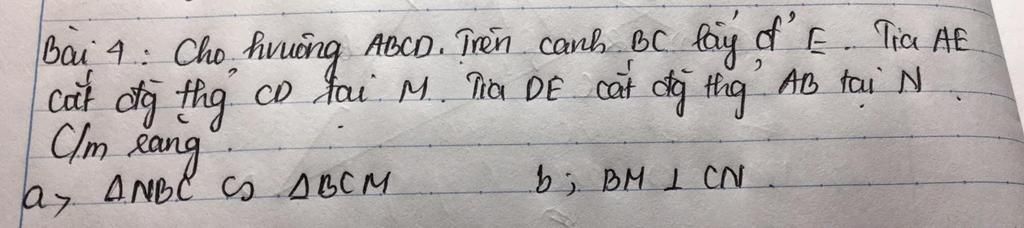 Bài 4: Cho hvuông ABCD. Trên cạnh BC lấy đ' E. Tia AE
cắt đg thg CD tại M. Tia DE cắt đg thg AB tại N.
C/m rằng.
a, ΔNBC ∽ ΔBCM b; BM ⊥ CN.